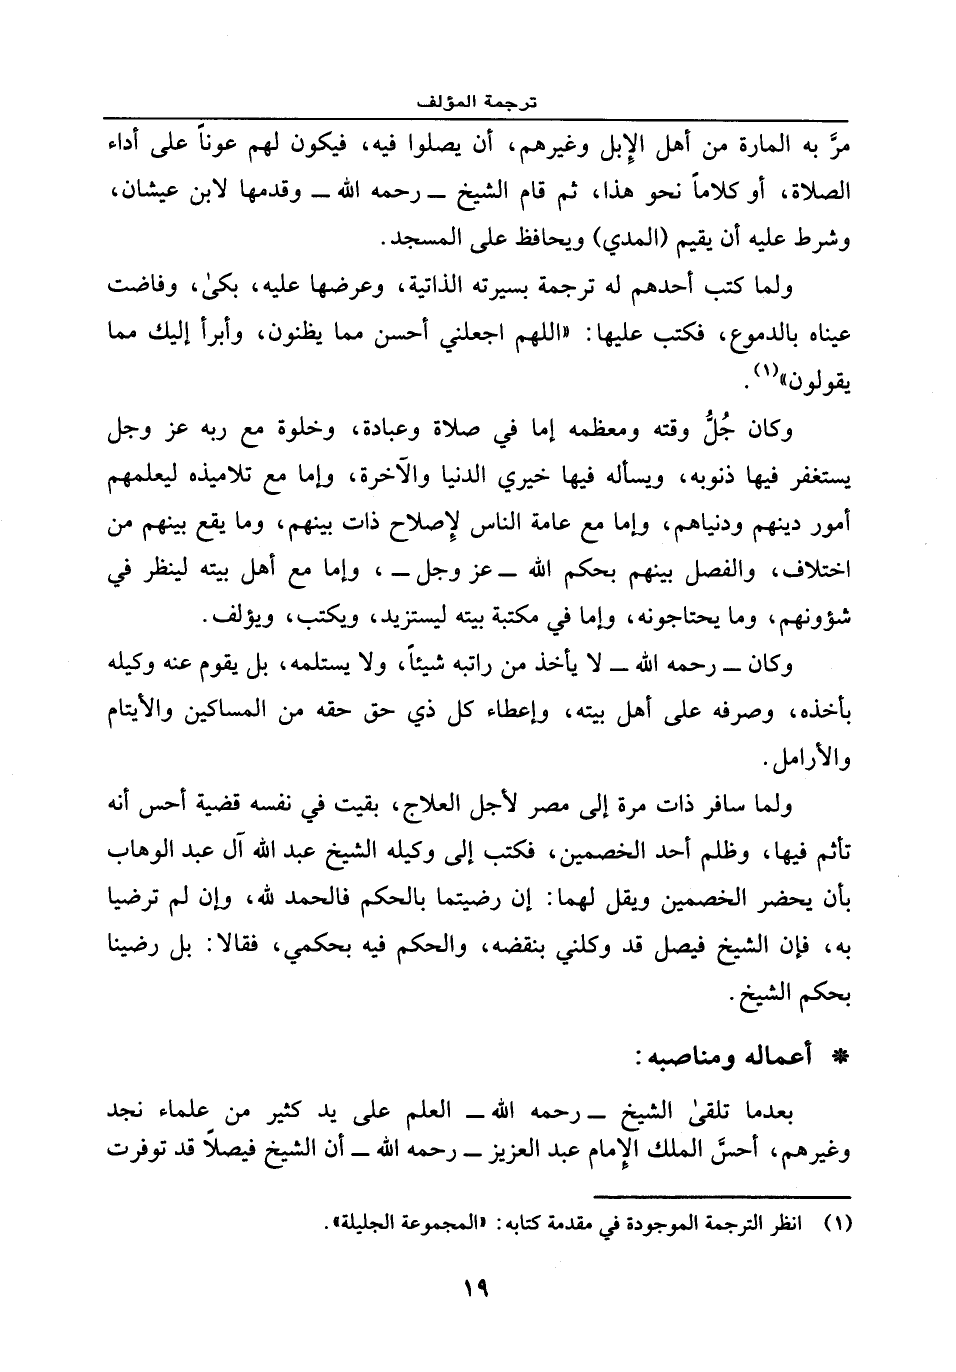 ترجمة المؤلف
مرَّ به المارة من أهل الإبل وغيرهم، أن يصلوا فيه، فيكون لهم عوناً على أداء
الصلاة، أو كلاماً نحو هذا، ثم قام الشيخ ــ رحمه الله ــ وقدمها لابن عيشان،
وشرط عليه أن يقيم (المدي) ويحافظ على المسجد.
ولما كتب أحدهم له ترجمة بسيرته الذاتية، وعرضها عليه، بكىٰ، وفاضت
عيناه بالدموع، فكتب عليها: «اللهم اجعلني أحسن مما يظنون، وأبرأ إليك مما
يقولون»(١).
وكان جُلُّ وقته ومعظمه إما في صلاة وعبادة، وخلوة مع ربه عز وجل
يستغفر فيها ذنوبه، ويسأله فيها خيري الدنيا والآخرة، وإما مع تلاميذه ليعلمهم
أمور دينهم ودنياهم، وإما مع عامة الناس لإصلاح ذات بينهم، وما يقع بينهم من
اختلاف، والفصل بينهم بحكم الله ــ عز وجل ــ ، وإما مع أهل بيته لينظر في
شؤونهم، وما يحتاجونه، وإما في مكتبة بيته ليستزيد، ويكتب، ويؤلف.
وكان ــ رحمه الله ــ لا يأخذ من راتبه شيئاً، ولا يستلمه، بل يقوم عنه وكيله
بأخذه، وصرفه على أهل بيته، وإعطاء كل ذي حق حقه من المساكين والأيتام
والأرامل.
ولما سافر ذات مرة إلى مصر لأجل العلاج، بقيت في نفسه قضية أحس أنه
تأثم فيها، وظلم أحد الخصمين، فكتب إلى وكيله الشيخ عبد الله آل عبد الوهاب
بأن يحضر الخصمين ويقل لهما: إن رضيتما بالحكم فالحمد لله، وإن لم ترضيا
به، فإن الشيخ فيصل قد وكلني بنقضه، والحكم فيه بحكمي، فقالا: بل رضينا
بحكم الشيخ.
* أعماله ومناصبه:
بعدما تلقىٰ الشيخ ــ رحمه الله ــ العلم على يد كثير من علماء نجد
وغيرهم، أحسَّ الملك الإمام عبد العزيز ــ رحمه الله ــ أن الشيخ فيصلاً قد توفرت
(١) انظر الترجمة الموجودة في مقدمة كتابه: «المجموعة الجليلة».
١٩